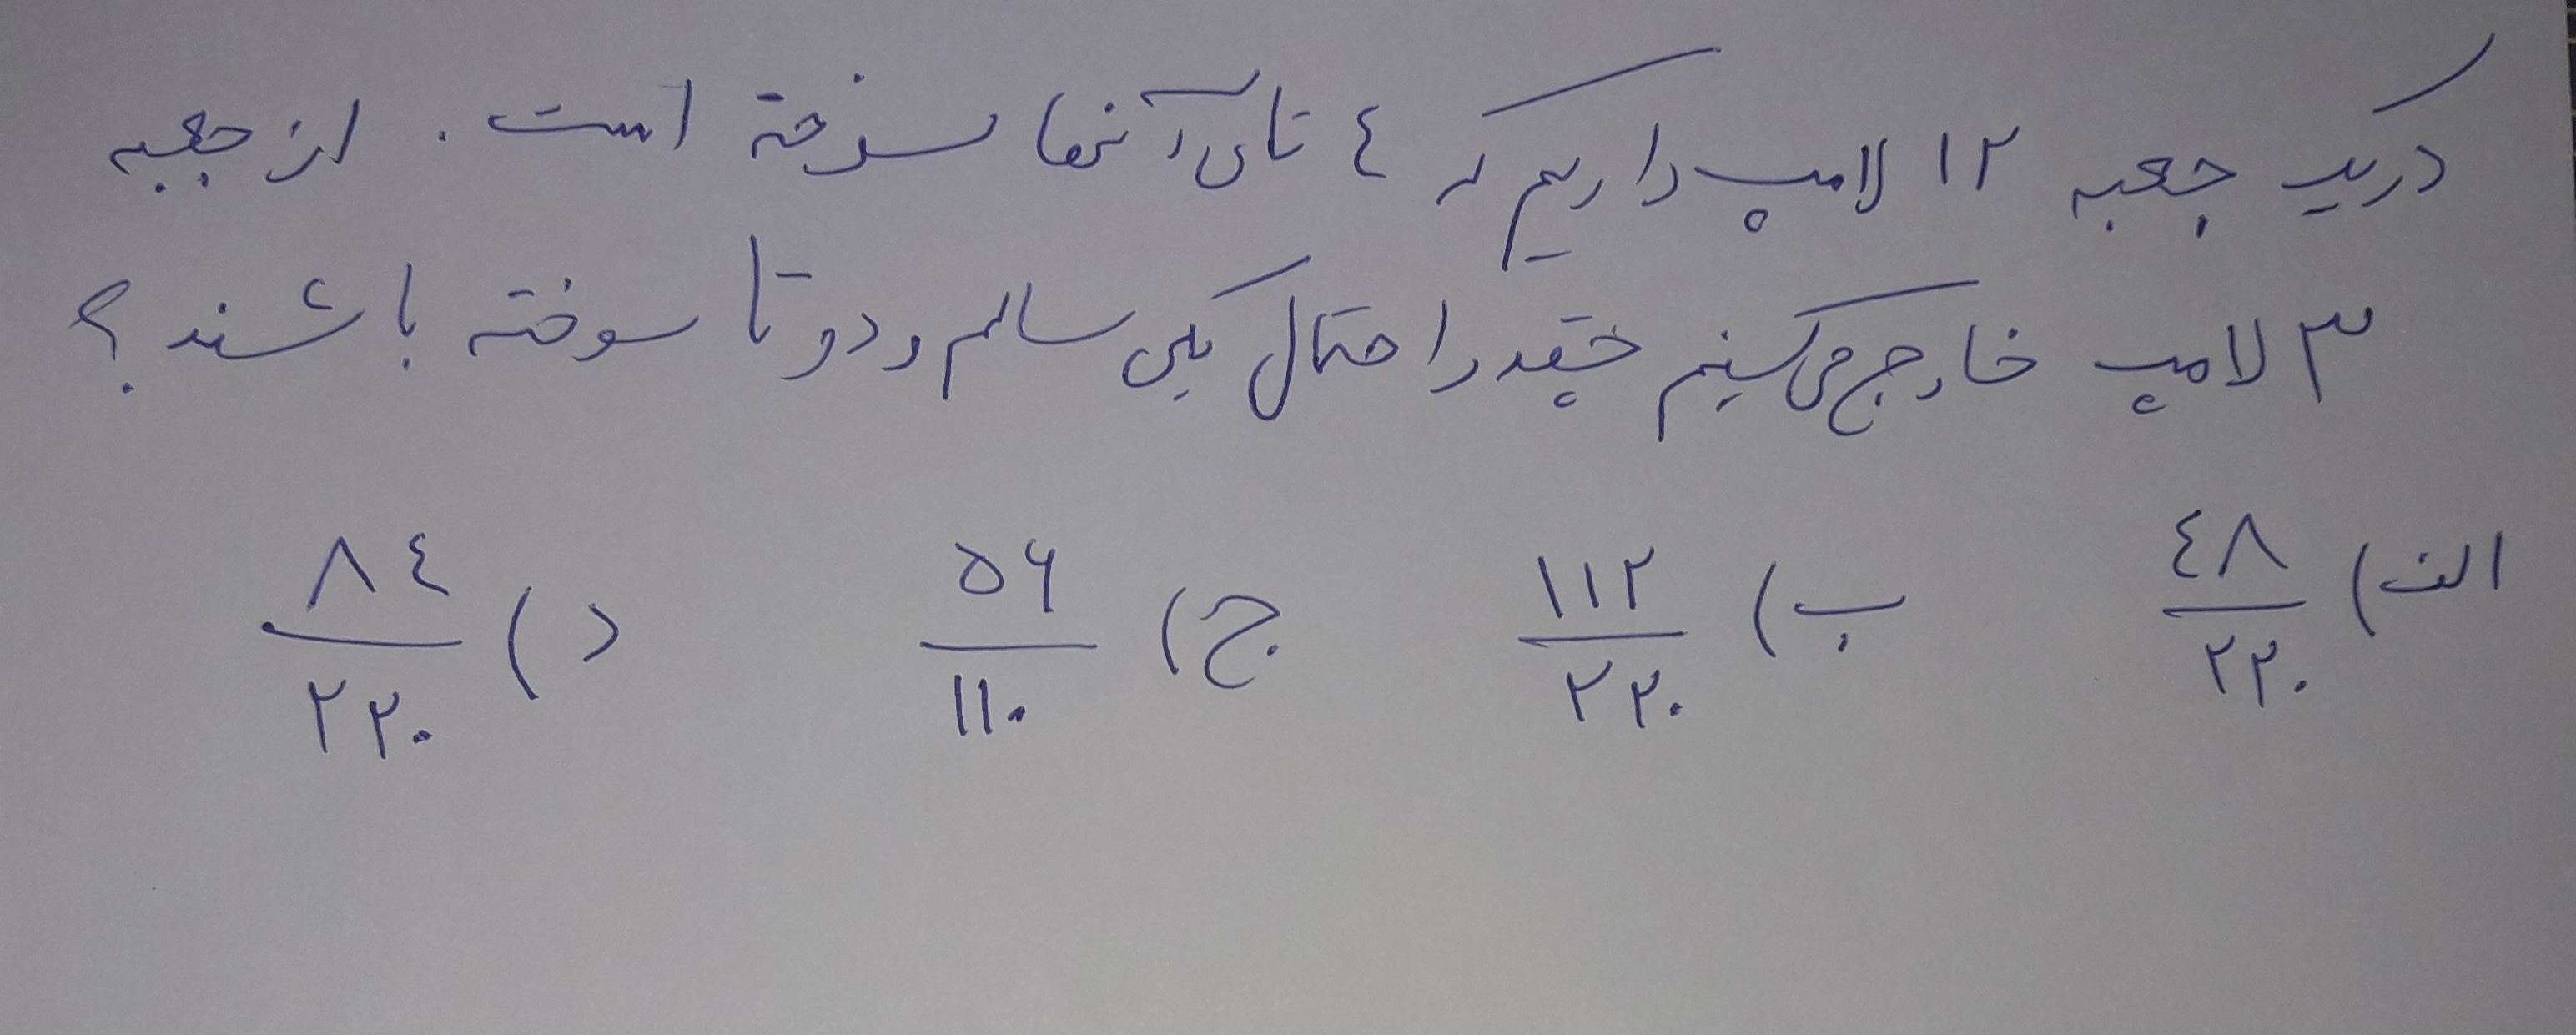 در یک جعبه ۱۲ لامپ داریم که ٤ تای آنها سوخته است. از جعبه
۳ لامپ خارج می‌کنیم چقدر احتمال یکی سالم و دو تا سوخته باشند؟
الف) ٤۸/۲۲۰ ب) ۱۱۲/۲۲۰ ج) ۵۶/۱۱۰ د) ۸٤/۲۲۰